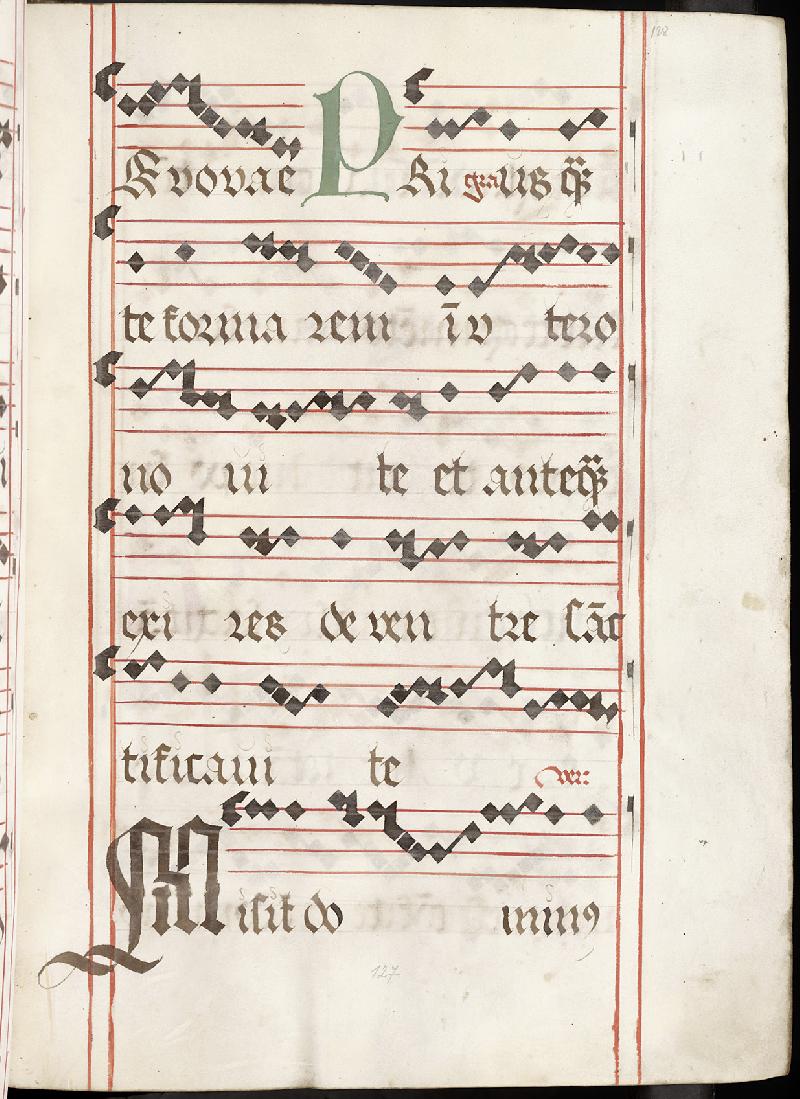 128
Evovaē PRi gra us q̄ꝫ
te formarem ī vtero
no ui te et anteq̄ꝫ
exi res de ven tre sāc
tificaui te ver:
Misit do minꝯ
127